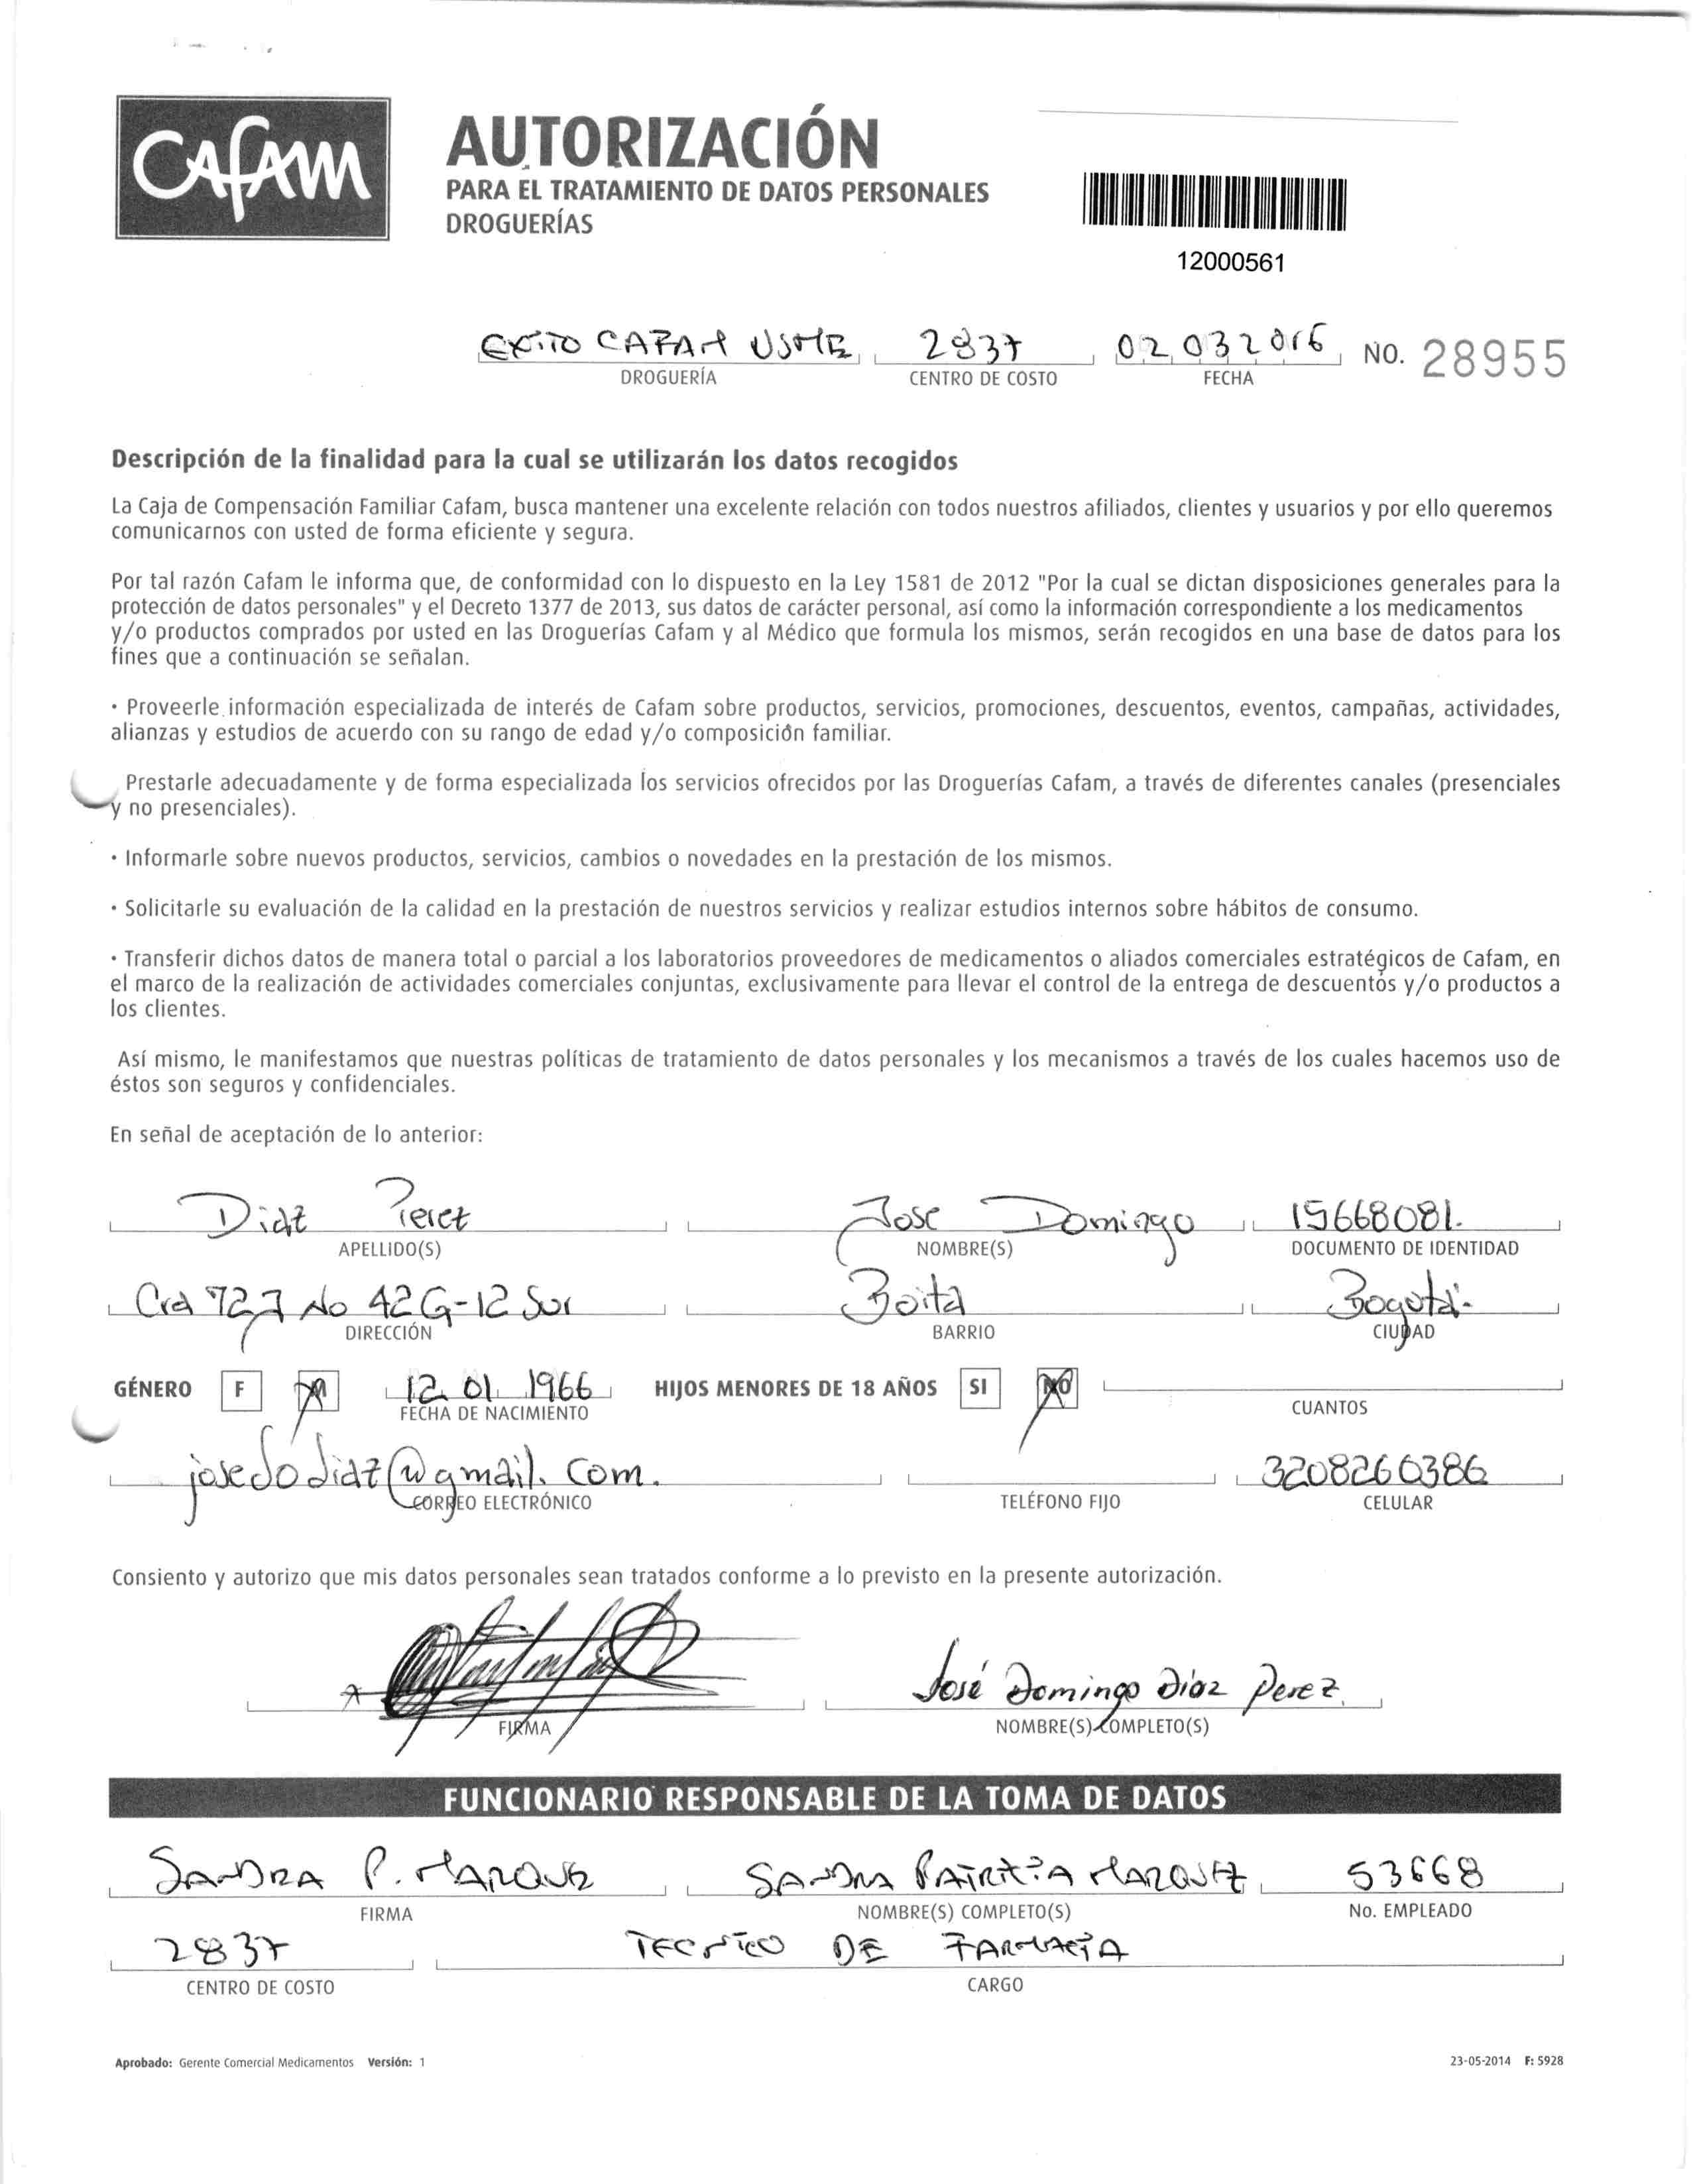 Cafam
AUTORIZACIÓN
PARA EL TRATAMIENTO DE DATOS PERSONALES
DROGUERÍAS
12000561
EXITO CAFAM USME 2837 02 03 2016 NO. 28955
DROGUERÍA CENTRO DE COSTO FECHA
Descripción de la finalidad para la cual se utilizarán los datos recogidos
La Caja de Compensación Familiar Cafam, busca mantener una excelente relación con todos nuestros afiliados, clientes y usuarios y por ello queremos
comunicarnos con usted de forma eficiente y segura.
Por tal razón Cafam le informa que, de conformidad con lo dispuesto en la Ley 1581 de 2012 "Por la cual se dictan disposiciones generales para la
protección de datos personales" y el Decreto 1377 de 2013, sus datos de carácter personal, así como la información correspondiente a los medicamentos
y/o productos comprados por usted en las Droguerías Cafam y al Médico que formula los mismos, serán recogidos en una base de datos para los
fines que a continuación se señalan.
· Proveerle información especializada de interés de Cafam sobre productos, servicios, promociones, descuentos, eventos, campañas, actividades,
alianzas y estudios de acuerdo con su rango de edad y/o composición familiar.
Prestarle adecuadamente y de forma especializada los servicios ofrecidos por las Droguerías Cafam, a través de diferentes canales (presenciales
y no presenciales).
· Informarle sobre nuevos productos, servicios, cambios o novedades en la prestación de los mismos.
· Solicitarle su evaluación de la calidad en la prestación de nuestros servicios y realizar estudios internos sobre hábitos de consumo.
· Transferir dichos datos de manera total o parcial a los laboratorios proveedores de medicamentos o aliados comerciales estratégicos de Cafam, en
el marco de la realización de actividades comerciales conjuntas, exclusivamente para llevar el control de la entrega de descuentos y/o productos a
los clientes.
Así mismo, le manifestamos que nuestras políticas de tratamiento de datos personales y los mecanismos a través de los cuales hacemos uso de
éstos son seguros y confidenciales.
En señal de aceptación de lo anterior:
Diaz Perez Jose Domingo 15668081.
APELLIDO(S) NOMBRE(S) DOCUMENTO DE IDENTIDAD
Cra 72J No 42G-12 Sur Boita Bogotá.
DIRECCIÓN BARRIO CIUDAD
GÉNERO F M 12 01 1966 HIJOS MENORES DE 18 AÑOS SI NO
FECHA DE NACIMIENTO CUANTOS
josedodiaz@gmail.com. 3208260386
CORREO ELECTRÓNICO TELÉFONO FIJO CELULAR
Consiento y autorizo que mis datos personales sean tratados conforme a lo previsto en la presente autorización.
José Domingo Díaz Perez.
FIRMA NOMBRE(S) COMPLETO(S)
FUNCIONARIO RESPONSABLE DE LA TOMA DE DATOS
SANDRA P. MARQUEZ SANDRA PATRICIA MARQUEZ 53668
FIRMA NOMBRE(S) COMPLETO(S) No. EMPLEADO
2837 TECNICO DE FARMACIA
CENTRO DE COSTO CARGO
Aprobado: Gerente Comercial Medicamentos Versión: 1 23-05-2014 F: 5928